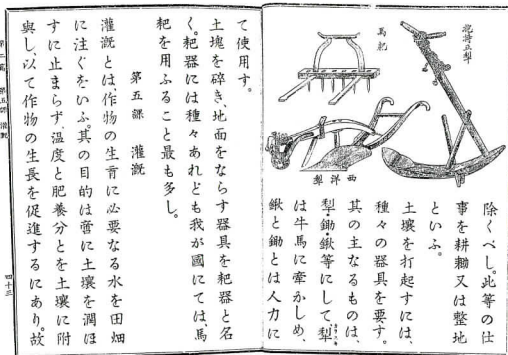 抱持立犂
馬耙
西洋犂
除くべし。此等の仕
事を耕耡又は整地
といふ。
土壤を打起すには、
種々の器具を要す。
其の主なるものは、
犂・鋤・鍬等にして犂
は牛馬に牽かしめ、
鍬と鋤とは人力に
て使用す。
土塊を碎き、地面をならす器具を耙器と名
く。耙器には種々あれども我が國にては、馬
耙を用ふること最も多し。
第五課 灌漑
灌漑とは、作物の生育に必要なる水を田畑
に注ぐをいふ。其の目的は啻に土壤を潤ほ
すに止まらず、温度と肥養分とを土壤に附
與し、以て作物の生長を促進するにあり。故
第二篇 第五課 灌漑
四十三